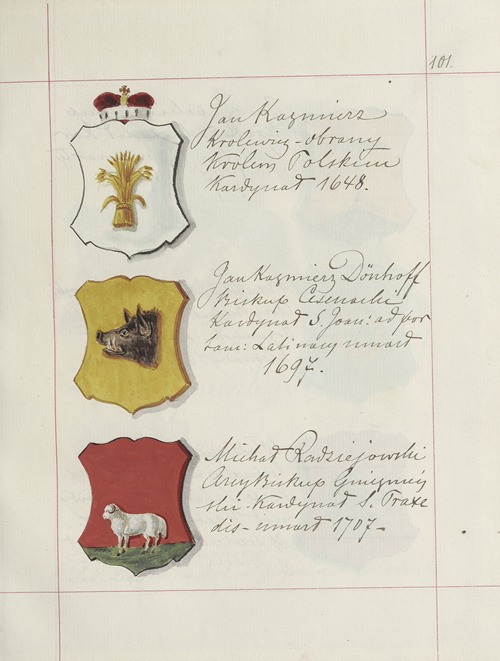 101.
Jan Kazmierz
Królewicz - obrany
Królem Polskim
Kardynał 1648.
Jan Kazmierz Dönhoff
Biskup Cesenacki
Kardynał S. Joan: ad por
tam: Latinam umarł
1697.
Michał Radziejowski
ArcyBiskup Gnieznień
ski - Kardynał S. Praxe
dis - umarł 1707 -